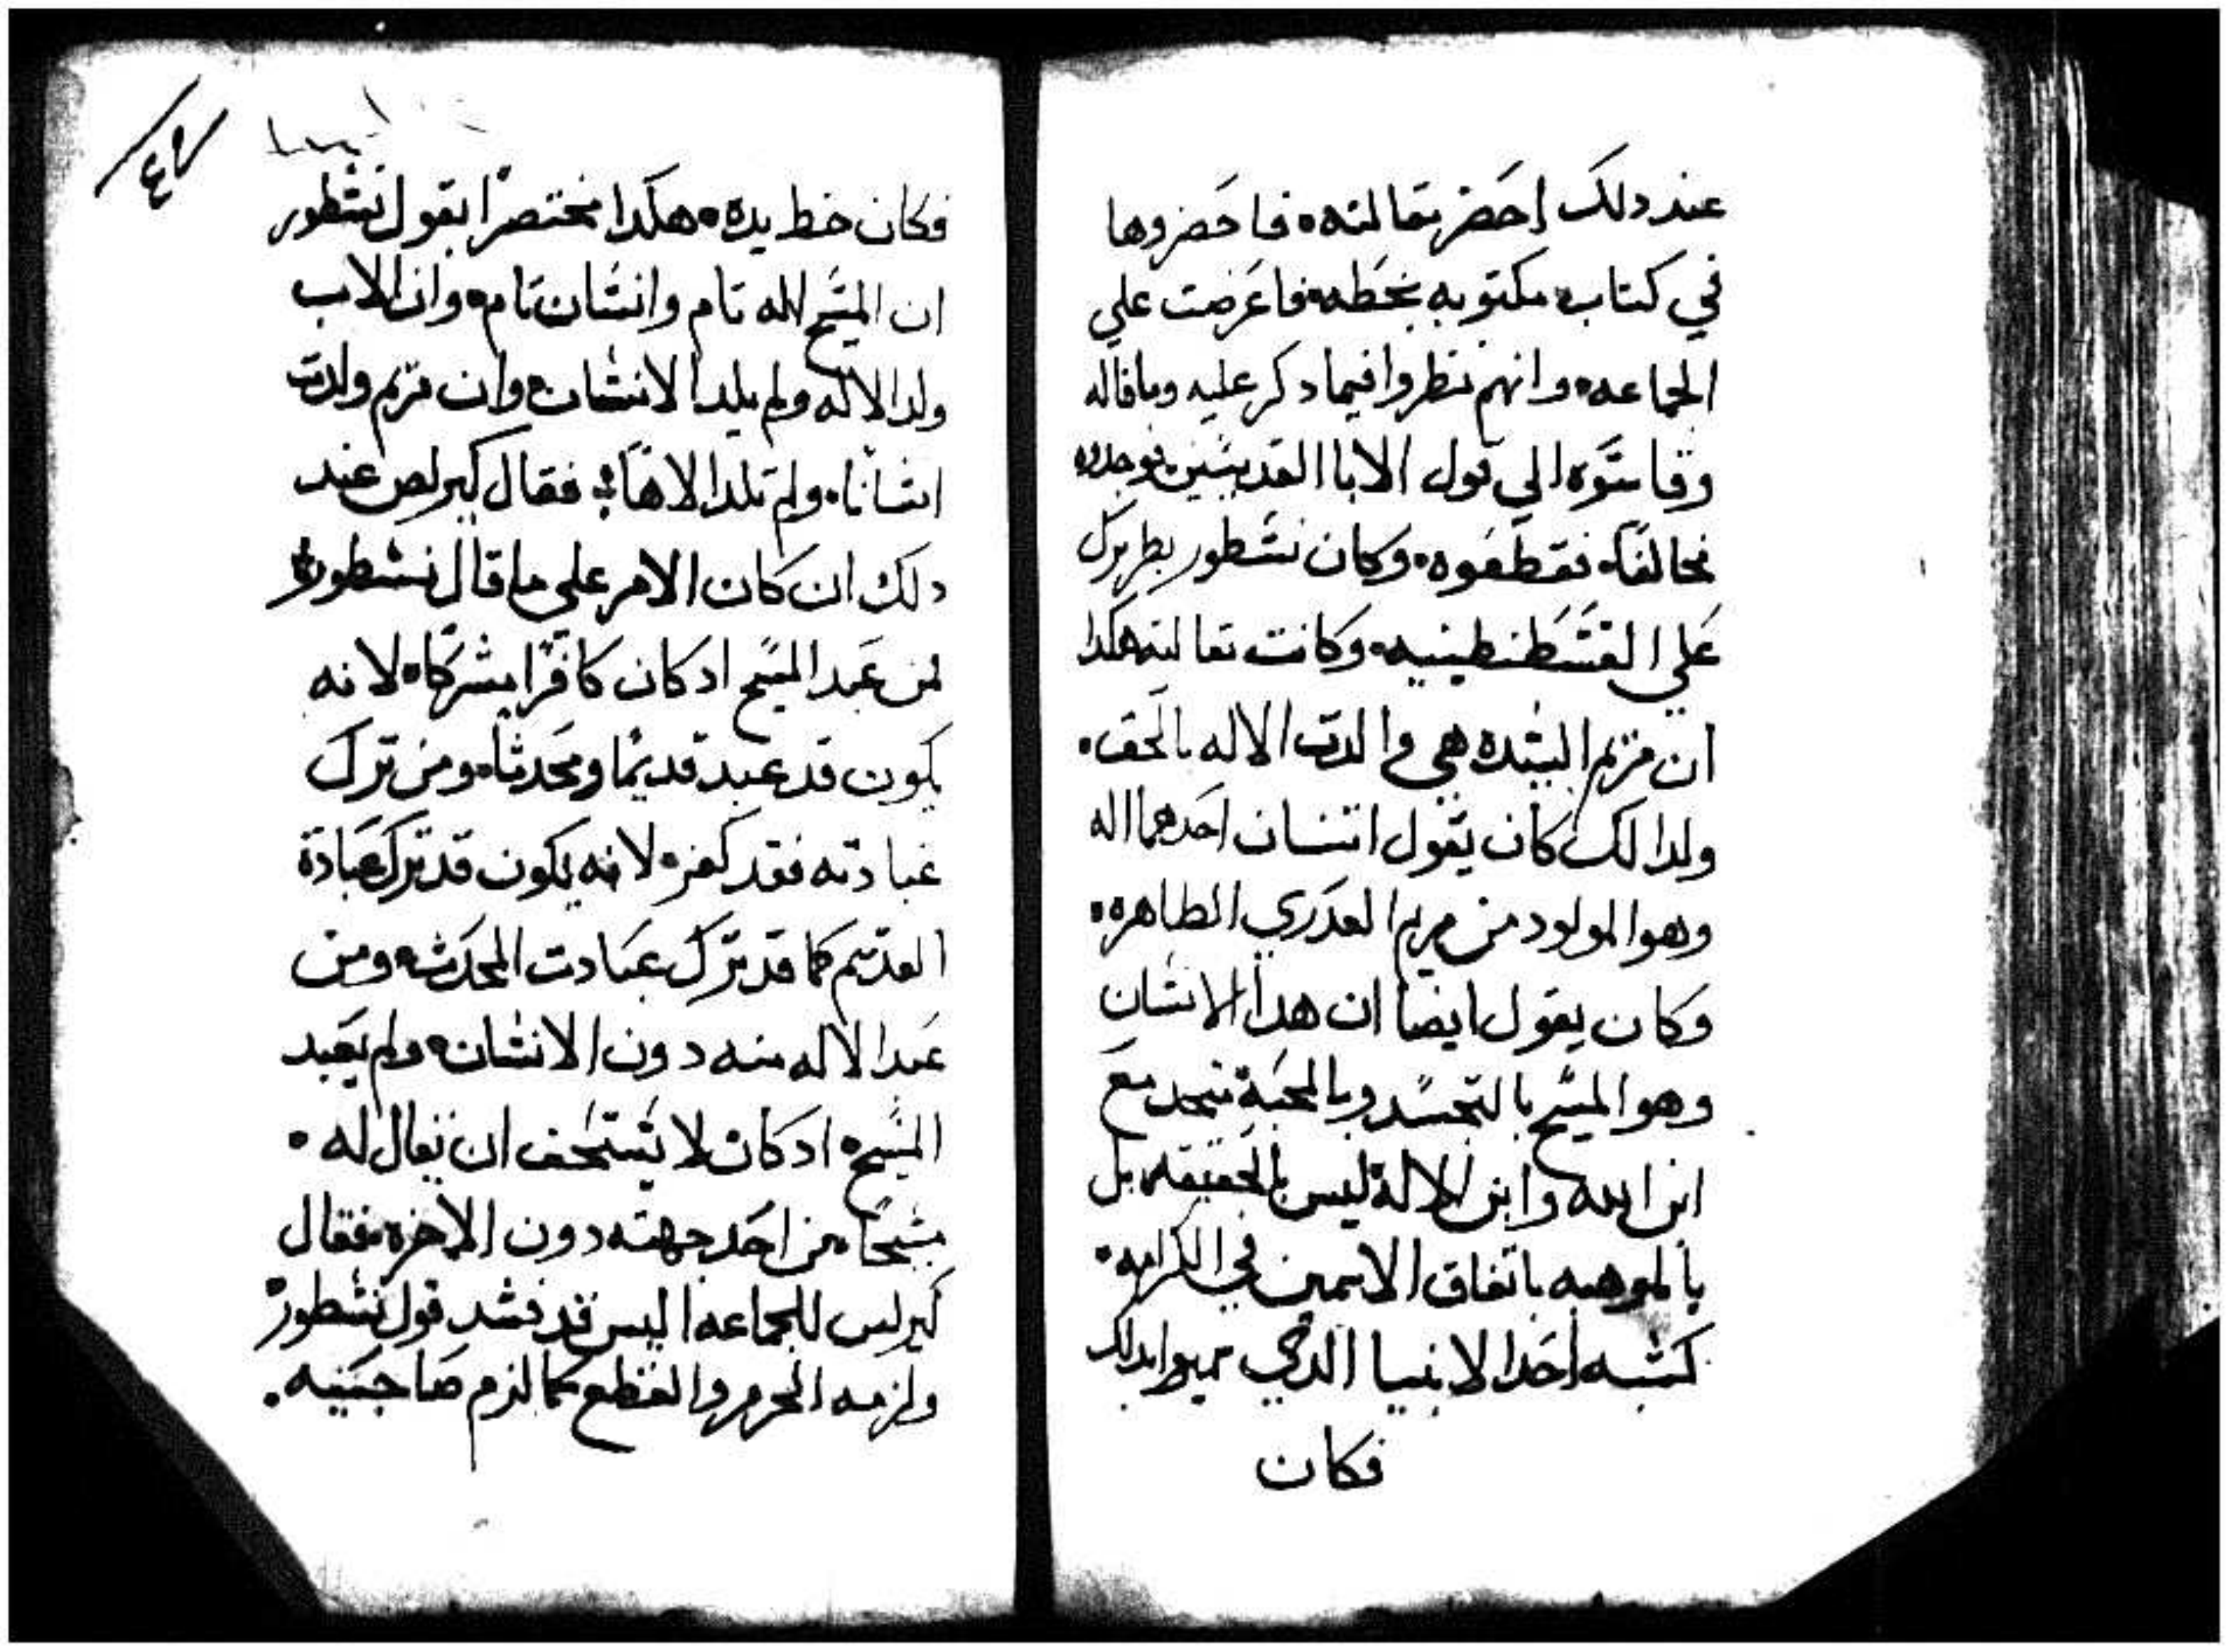 عند دلك احضر مقالته • فاحضروها
في كتاب مكتوبه بخطه • فاعرضت علي
الجماعه • وانهم نظروا فيما دكر عليه وماقاله
وقاسوه الي قول الابا القديسين • فوجدوه
مخالفا • فقطعوه • وكان نسطور بطريرك
علي القسطنطينيه • وكانت مقالته هكدا
ان مريم البتده هي والدت الاله بالحق •
ولدالك كان يقول اتنان احدهما اله
وهوا المولود من مريم العدري الطاهره •
وكان يقول ايضا ان هدا الانسان
وهو المسيح بالتجسد وبالمحبة متحد مع
ابن الله وابن الاله ليس بالحقيقه • بل
بالموهبه باتفاق الاسمين في الكرامه •
كشبه احد الانبيا الدي
فكان
٤٩
فكان خط يده • هكدا مختصرا يقول نسطور
ان المسيح اله تام وانسان تام • وان الاب
ولد الاله ولم يلد الانسان • وان مريم ولدت
انسانا • ولم تلد الاها • فقال كيرلص عند
دلك ان كان الامر علي ما قال نسطور
لمن عبد المسيح ادكان كافرا مشركا • لانه
يكون قد عبد قديما ومحدثا • ومن ترك
عبادته فقد كفر • لانه يكون قد ترك عبادة
القديم كما قد ترك عبادت المحدث • ومن
عبد الاله منه دون الانسان • ولم يعبد
المسيح • ادكان لا يستحق ان يقال له •
مسيحا من احد جهته دون الاخره • فقال
كيرلس للجماعه اليس قد فسد قول نسطور
ولزمه الحرم والقطع كما لزم صاحبيه •